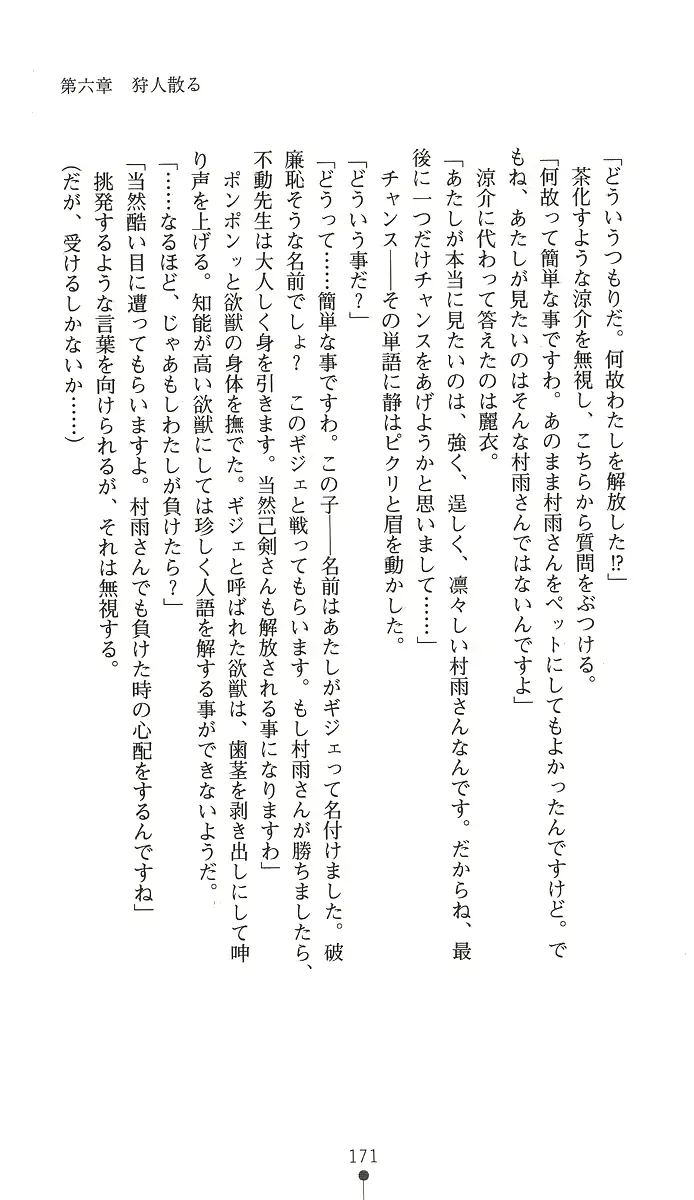 第六章　狩人散る
「どういうつもりだ。何故わたしを解放した!?」
　茶化すような涼介を無視し、こちらから質問をぶつける。
「何故って簡単な事ですわ。あのまま村雨さんをペットにしてもよかったんですけど。で
もね、あたしが見たいのはそんな村雨さんではないんですよ」
　涼介に代わって答えたのは麗衣。
「あたしが本当に見たいのは、強く、逞しく、凛々しい村雨さんなんです。だからね、最
後に一つだけチャンスをあげようかと思いまして……」
　チャンス――その単語に静はピクリと眉を動かした。
「どういう事だ？」
「どうって……簡単な事ですわ。この子――名前はあたしがギジェって名付けました。破
廉恥そうな名前でしょ？　このギジェと戦ってもらいます。もし村雨さんが勝ちましたら、
不動先生は大人しく身を引きます。当然己剣さんも解放される事になりますわ」
　ポンポンッと欲獣の身体を撫でた。ギジェと呼ばれた欲獣は、歯茎を剥き出しにして呻
り声を上げる。知能が高い欲獣にしては珍しく人語を解する事ができないようだ。
「……なるほど、じゃあもしわたしが負けたら？」
「当然酷い目に遭ってもらいますよ。村雨さんでも負けた時の心配をするんですね」
　挑発するような言葉を向けられるが、それは無視する。
（だが、受けるしかないか……）
171